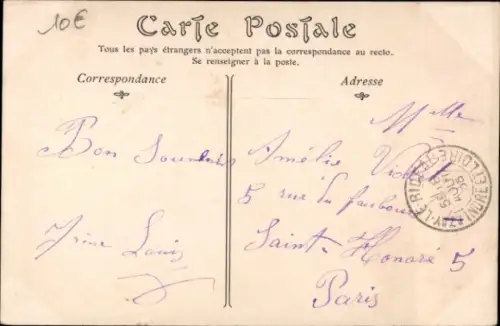 10€
Carte Postale
Tous les pays étrangers n'acceptent pas la correspondance au recto.
Se renseigner à la poste.
Correspondance
Adresse
Bon Souvenir
Louis
Mlle
Amélie
5 rue du faubour
Saint-Honoré 5
Paris
AZAY-LE-RIDEAU
INDRE ET LOIRE